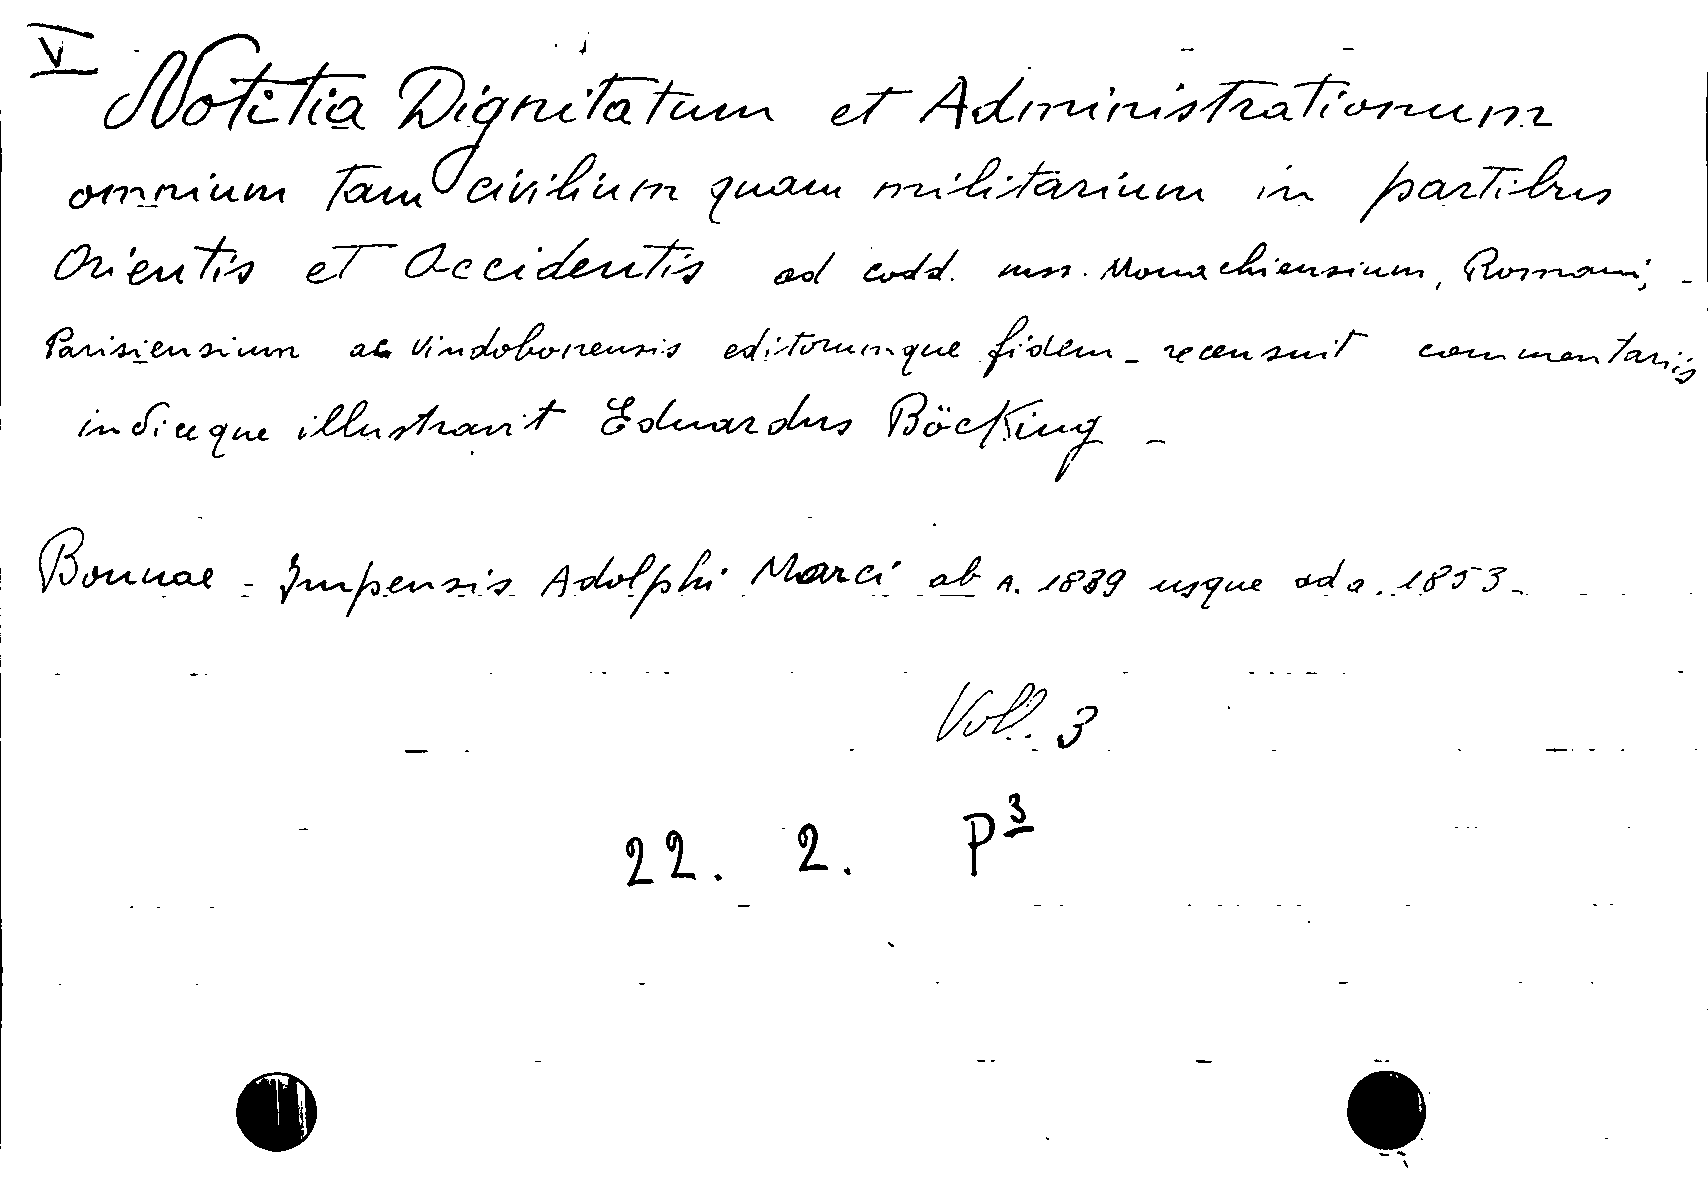 V
Notitia Dignitatum et Administrationum
omnium tam civilium quam militarium in partibus
Orientis et Occidentis ad codd. mss. Monachiensium, Romani,
Parisiensium ac Vindobonensis editorumque fidem - recensuit commentariis
indiceque illustravit Eduardus Böcking -
Bonnae - Impensis Adolphi Marci ab a. 1839 usque ad a. 1853 -
Voll. 3
22. 2. P3